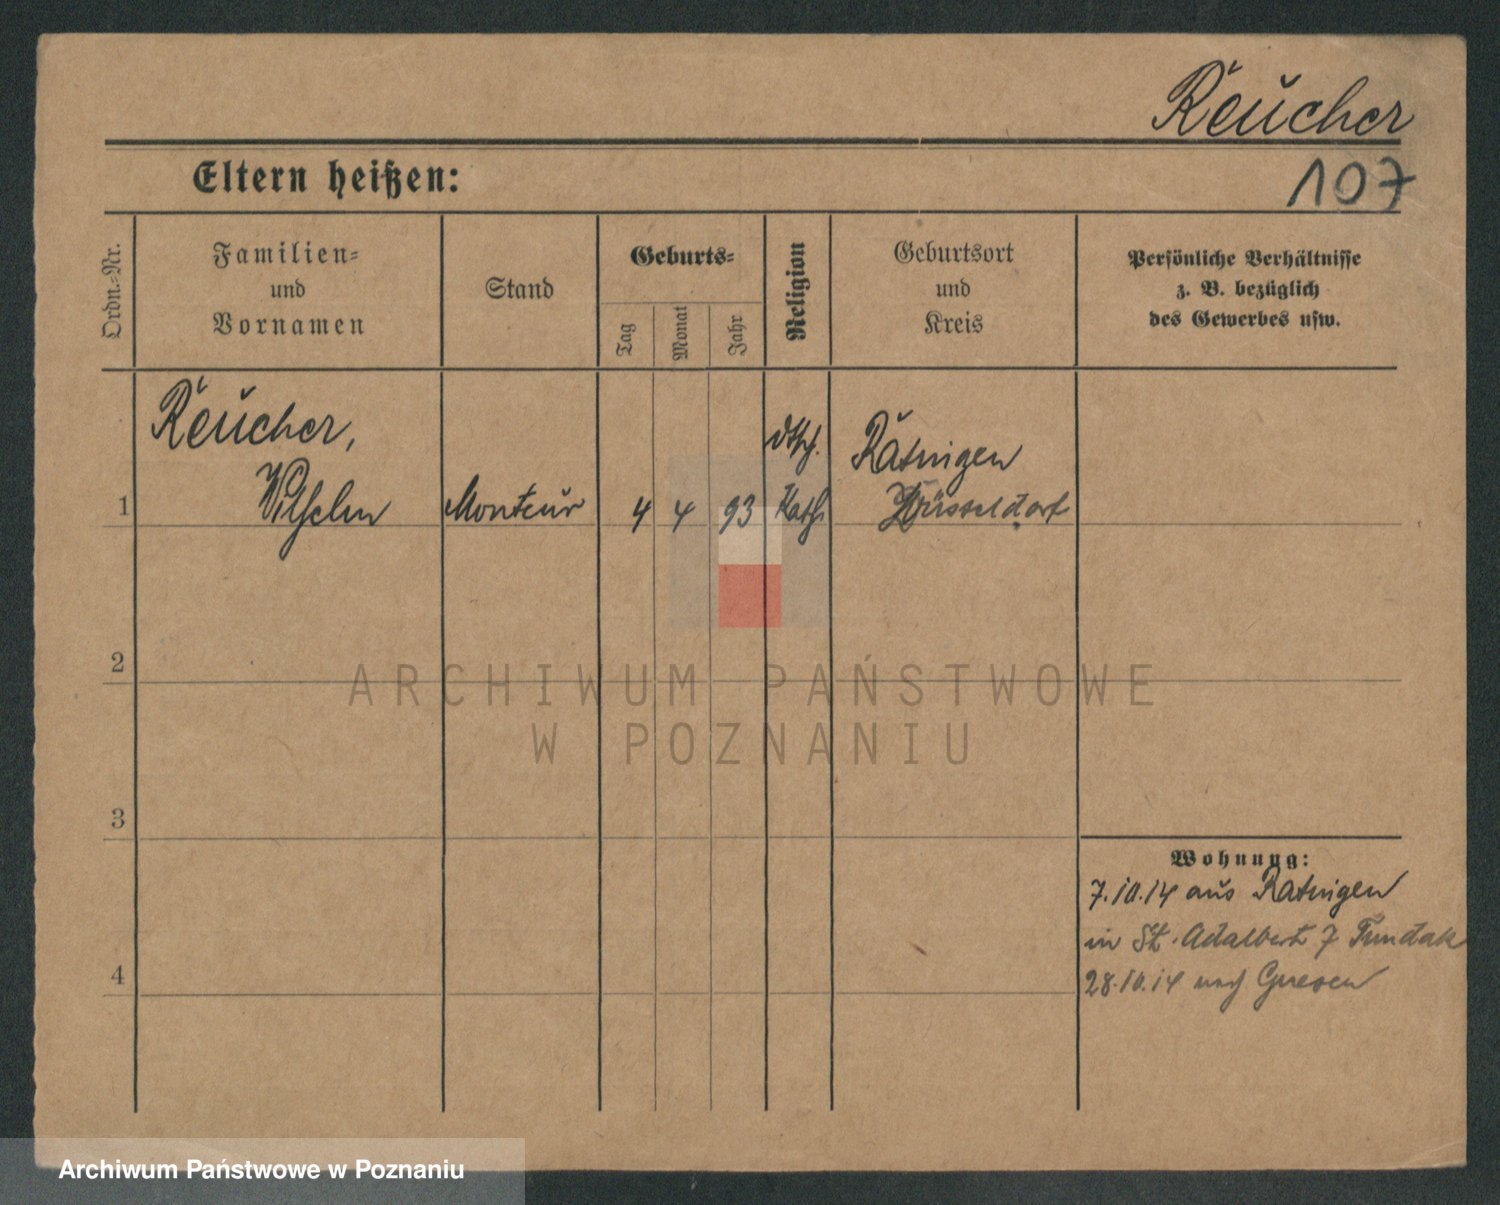 Reucher
107
Eltern heißen:
Ordn.-Nr.
Familien-
und
Vornamen
Stand
Geburts-
Tag
Monat
Jahr
Religion
Geburtsort
und
Kreis
Persönliche Verhältnisse
z. B. bezüglich
des Gewerbes usw.
Reucher,
dtsch.
Ratingen
1
Wilhelm
Monteur
4
4
93
Kath.
Düsseldorf
2
ARCHIWUM PAŃSTWOWE
W POZNANIU
3
Wohnung:
7.10.14 aus Ratingen
in St. Adalbert 7
4
28.10.14 nach Gnesen
Archiwum Państwowe w Poznaniu